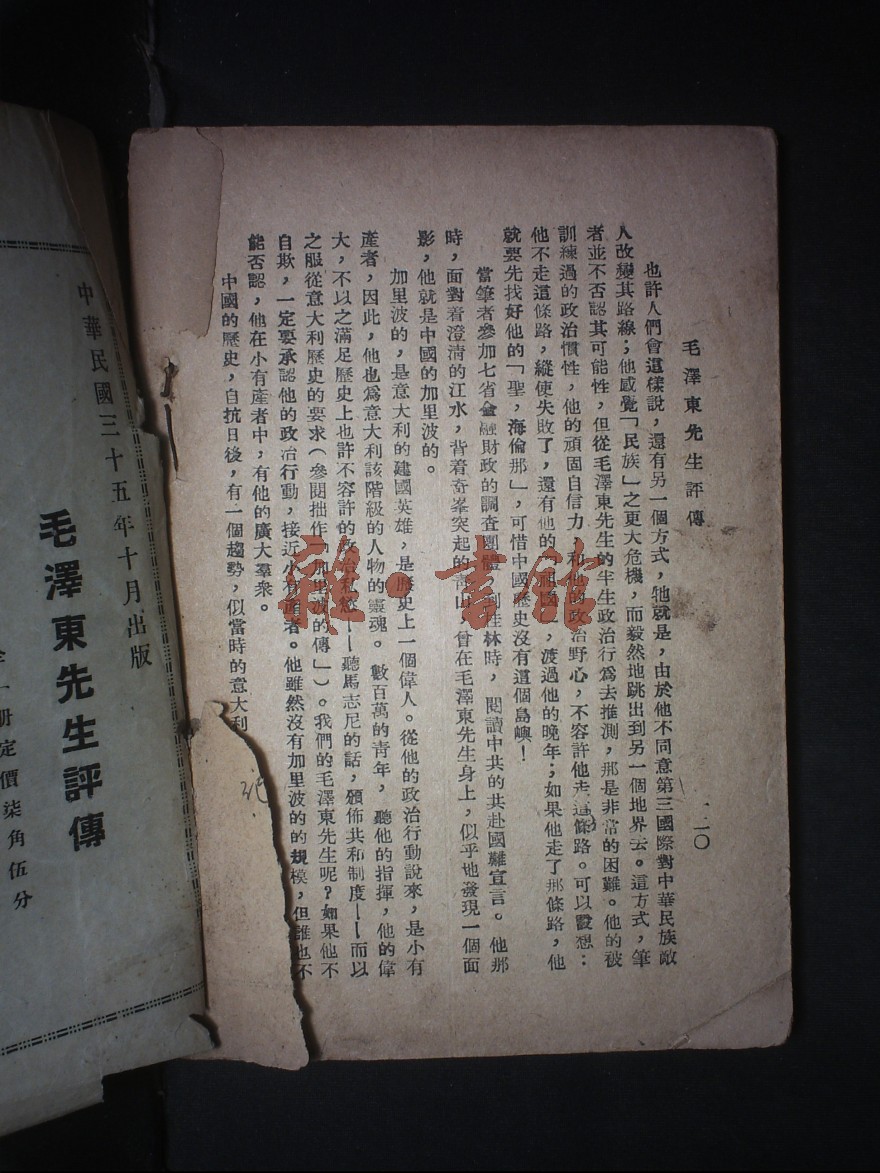 毛澤東先生評傳
二〇
也許人們會這樣說，還有另一個方式，牠就是，由於他不同意第三國際對中華民族敵
人改變其路線；他感覺「民族」之更大危機，而毅然地跳出到另一個地界去。這方式，筆
者並不否認其可能性，但從毛澤東先生的半生政治行爲去推測，那是非常的困難。他的被
訓練過的政治慣性，他的頑固自信力，和他的政治野心，不容許他走這條路。可以設想：
他不走這條路，縱使失敗了，還有他的「祖國」，渡過他的晚年；如果他走了那條路，他
就要先找好他的「聖，海倫那」，可惜中國歷史沒有這個島嶼！
當筆者參加七省金融財政的調查團體，到桂林時，閱讀中共的共赴國難宣言。他那
時，面對着澄清的江水，背着奇峯突起的靑山，曾在毛澤東先生身上，似乎地發現一個面
影，他就是中國的加里波的。
加里波的，是意大利的建國英雄，是歷史上一個偉人。從他的政治行動說來，是小有
產者，因此，他也爲意大利該階級的人物的靈魂。數百萬的青年，聽他的指揮，他的偉
大，不以之滿足歷史上也許不容許的政治私慾——聽馬志尼的話，頒佈共和制度——而以
之服從意大利歷史的要求（參閱拙作「加里波的傳」）。我們的毛澤東先生呢？如果他不
自欺，一定要承認他的政治行動，接近小有產者。他雖然沒有加里波的的規模，但誰也不
能否認，他在小有產者中，有他的廣大羣衆。
中國的歷史，自抗日後，有一個趨勢，似當時的意大利
中華民國三十五年十月出版
毛澤東先生評傳
全一册定價柒角伍分
雜·書館